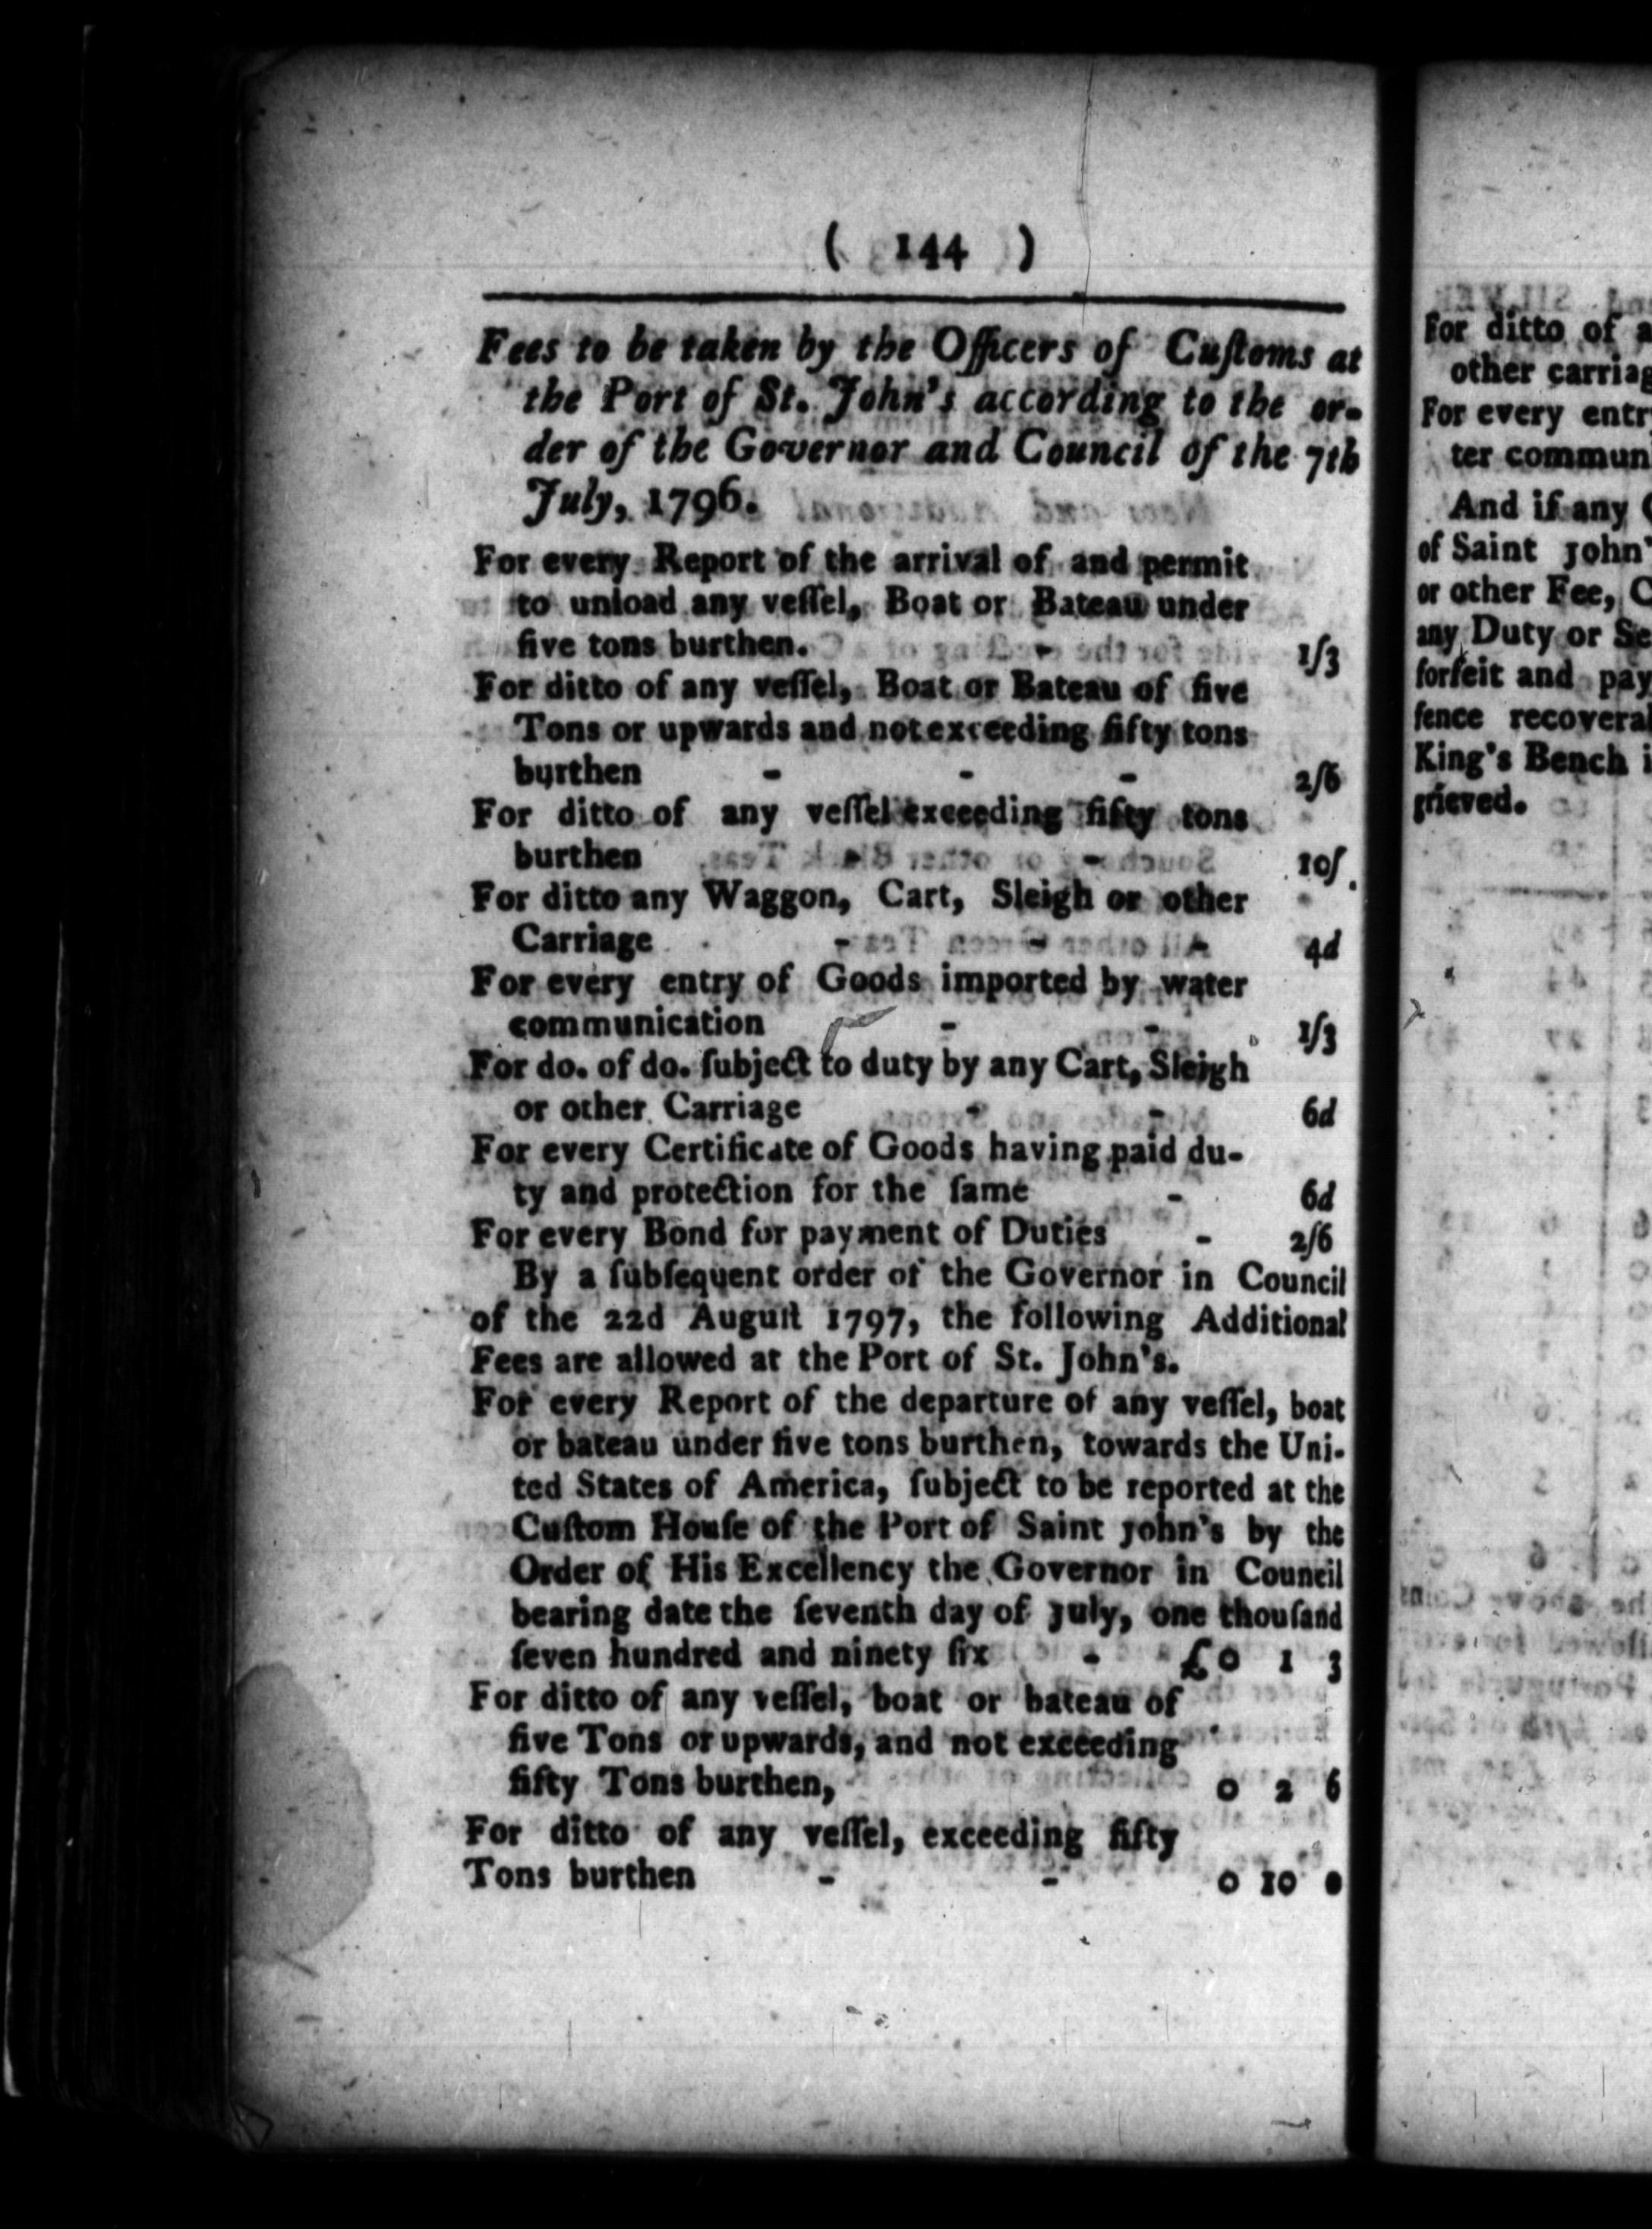 ( 144 )
Fees to be taken by the Officers of Cuſtoms at
the Port of St. John's according to the or-
der of the Governor and Council of the 7th
July, 1796.
For every Report of the arrival of and permit
to unload any veſſel, Boat or Bateau under
five tons burthen. - 1ſ3
For ditto of any veſſel, Boat or Bateau of five
Tons or upwards and not exceeding fifty tons
burthen - - - 2ſ6
For ditto of any veſſel exceeding fifty tons
burthen - - 10ſ.
For ditto any Waggon, Cart, Sleigh or other
Carriage - - - 4d
For every entry of Goods imported by water
communication - - 1ſ3
For do. of do. ſubject to duty by any Cart, Sleigh
or other Carriage - - 6d
For every Certificate of Goods having paid du-
ty and protection for the ſame - 6d
For every Bond for payment of Duties - 2ſ6
By a ſubſequent order of the Governor in Council
of the 22d Auguſt 1797, the following Additional
Fees are allowed at the Port of St. John's.
For every Report of the departure of any veſſel, boat
or bateau under five tons burthen, towards the Uni-
ted States of America, ſubject to be reported at the
Cuſtom Houſe of the Port of Saint John's by the
Order of His Excellency the Governor in Council
bearing date the ſeventh day of July, one thouſand
ſeven hundred and ninety ſix - £0 1 3
For ditto of any veſſel, boat or bateau of
five Tons or upwards, and not exceeding
fifty Tons burthen, 0 2 6
For ditto of any veſſel, exceeding fifty
Tons burthen - - 0 10 0
For ditto of
other
For every
ter
And if any
of Saint John's
or other Fee,
any Duty or
forfeit and pay
fence
King's Bench
grieved.